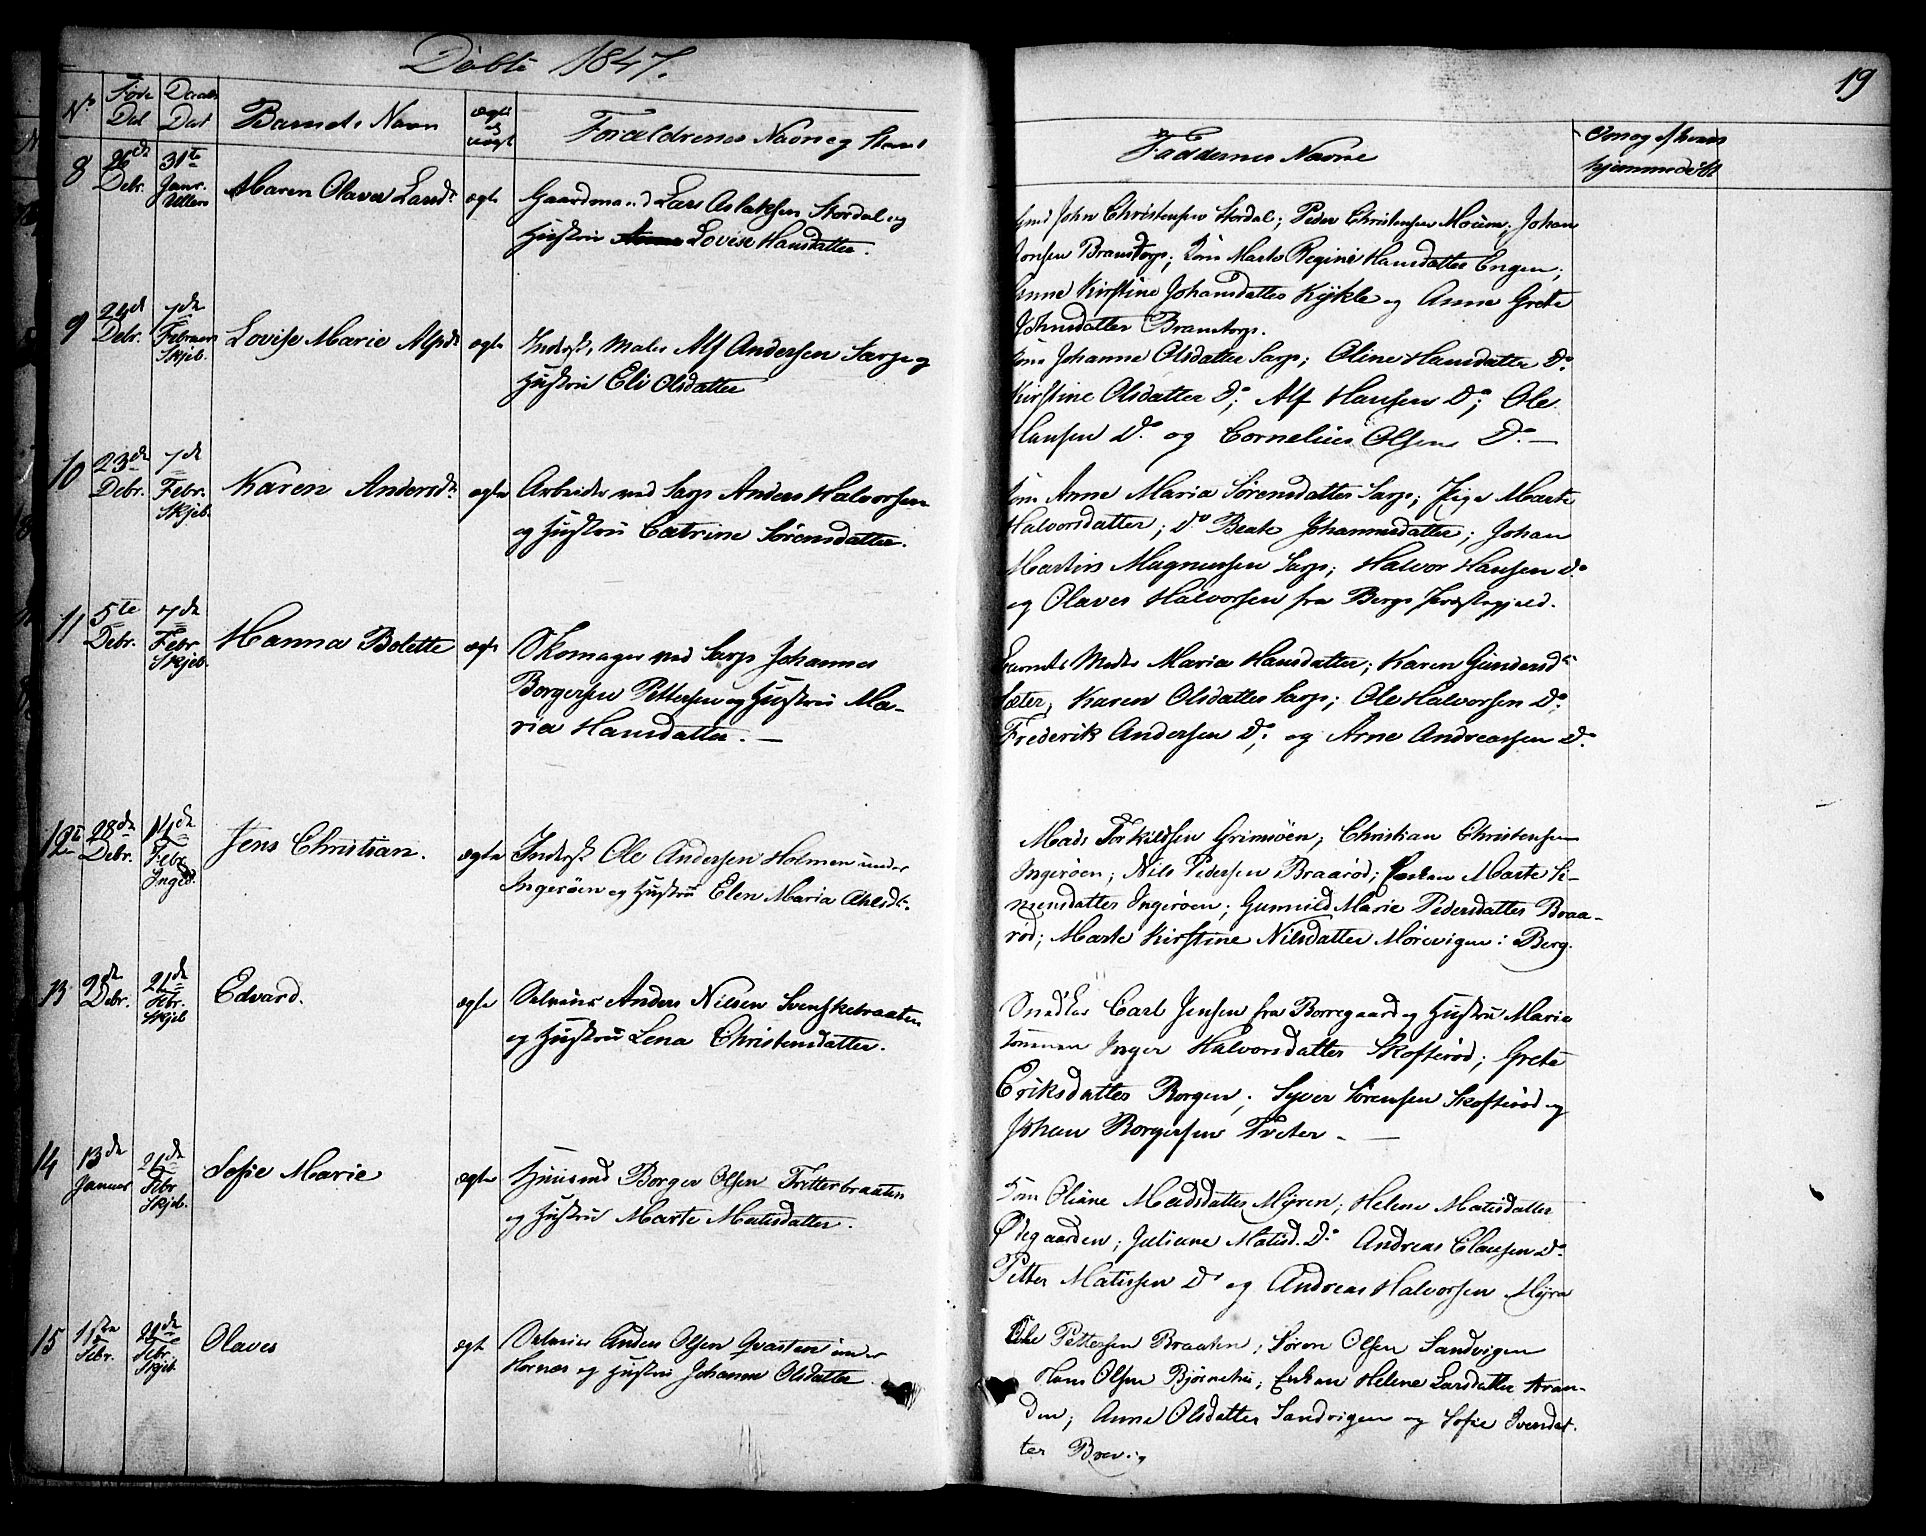 Døbte 1847.
19
No
Føde Dat
Daabs Dat
Barnets Navn
ægte el uægt
Forældrenes Navn og Stand
Faddernes Navne
8
26de Debr.
31te Janr. Ullerø
Maren Olava Larsdr
ægte
Gaardmand Lars Aslaksen Stordal og
Hustru Lovise Hansdatter.
Gmd John Christensen Stordal; Peder Christensen Moum; Johan
Jonsen Branstorp; Kone Marte Regine Hansdatter Engen;
Anne Kirstine Johansdatter Kykle og Anne Grete
Johnsdatter Branstorp.
9
Debr.
7de Februar Skjeb.
Lovise Marie Alfsdr
ægte
Inderst, Maler Alf Andersen Sarp og
Hustru Eli Olsdatter
Kone Johanne Olsdatter Sarp; Oline Hansdatter Do.
Kirstine Olsdatter Do; Alf Hansen Do; Ole
Hansen Do. og Cornelius Olsen Do. —
10
23de Debr.
7de Febr. Skjeb.
Karen Andersdr
ægte
Arbeider ved Sarp Anders Halvorsen
og Hustru Catrine Sørensdatter.
Kone Anne Maria Sørensdatter Sarp; Pige Marte
Halvorsdatter; Do Beate Johannesdatter; Johan
Martin Magnussen Sarp; Halvor Hansen Do.
og Olaves Halvorsen fra Bergs Præstegjeld.
11
5te Debr.
7de Febr. Skjeb.
Hanna Bolette
ægte
Skomager ved Sarp Johannes
Borgersen Pettersen og Hustru Ma-
ria Hansdatter. —
Barnets Moder Maria Hansdatter; Karen Gundersdr
Sæter; Karen Olsdatter Sarp; Ole Halvorsen Do.
Frederik Andersen Do; og Arne Andreassen Do.
12
28de Debr.
14de Febr. Inged.
Jens Christian.
ægte
Inderst Ole Andersen Holmen under
Ingerøen og Hustru Elen Maria
Mads Torkildsen Grimsøen; Christian Christensen
Ingerøen; Nils Pedersen Braarød; Marte Si-
mensdatter Ingerøen; Gunnild Marie Pedersdatter Braa-
rød; Marte Kirstine Nilsdatter Mørevigen i Berg.
13
9de Debr.
21de Febr. Skjeb
Edvard.
ægte
Selveier Anders Nilsen Svenskebraaten
og Hustru Lena Christensdatter.
Snedker Carl Jensen fra Borregaard og Hustru Maria
Inger Halvorsdatter Skofterød; Grete
Eriksdatter Borgen; Syver Sørensen Skofterød og
Johan Borgersen Træter. —
14
13de Januar
21de Febr Skjeb.
Sofie Marie
ægte
Huusmd Borger Olsen Trætterbraaten
og Hustru Marte Matisdatter.
Kone Oliane Madsdatter Myren; Helene Matisdatter
Ødegaarden; Juliane Matisd. Do. Andreas Clausen Do.
Petter Matissen Do og Andreas Halvorsen Myra
15
11te Febr.
21de Febr. Skjeb.
Olaves
ægt
Selveier Anders Olsen Qvasten under
Hornæs og Hustru Johanne Olsdatter
Ole Pettersen Braaten; Søren Olsen Sandvigen
Hans Olsen Bjørnehu; Enkan Helene Larsdatter Stran-
den; Anne Olsdatter Sandvigen og Sofie Iversdat-
ter Brevig